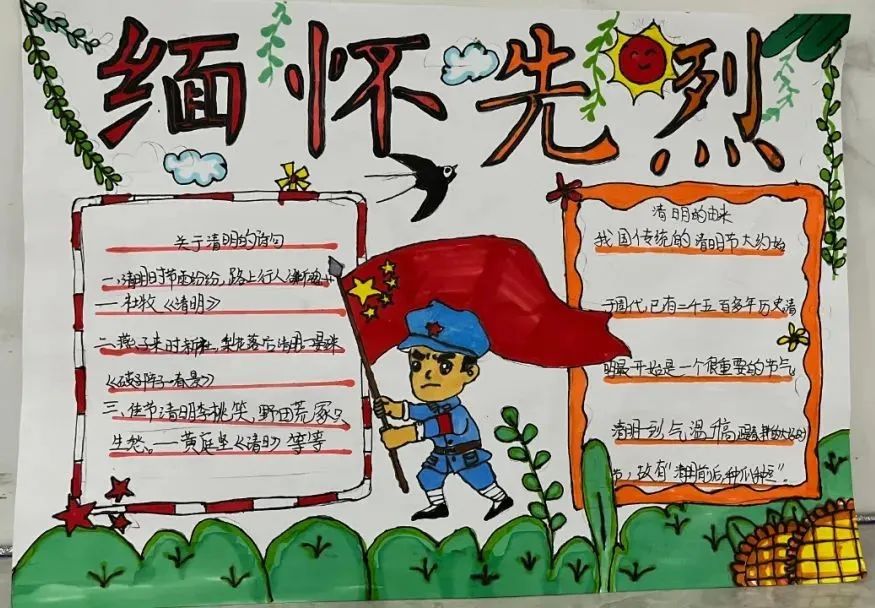 缅怀先烈
关于清明的诗句
一、清明时节雨纷纷,路上行人
——杜牧《清明》
二、燕子来时新社,梨花落后清明。——晏殊
《破阵子·春景》
三、佳节清明李桃笑,野田荒冢只
生愁。——黄庭坚《清明》等等
清明的由来
我国传统的清明节大约始
于周代,已有二千五百多年历史清
明最开始是一个很重要的节气
清明一到气温升高
节,故有“清明前后,种瓜种豆”。